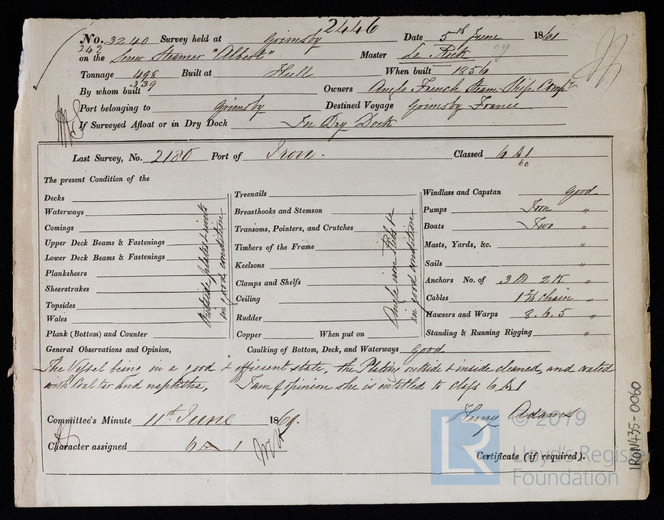 2446
No. 3240 Survey held at Grimsby Date 5th June 1861
342
on the Screw Steamer "Albert" Master Le Rich
Tonnage 498 Built at Hull When built 1856
339
By whom built Owners Anglo French Steam Ship Compy
Port belonging to Grimsby Destined Voyage Grimsby France
If Surveyed Afloat or in Dry Dock In Dry Dock
Last Survey, No. 2180 Port of Iron. Classed 6 A 1
60
The present Condition of the
Decks
Waterways
Comings
Upper Deck Beams & Fastenings
Lower Deck Beams & Fastenings
Planksheers
Sheerstrakes
Topsides
Wales
Plank (Bottom) and Counter
Outside plates & rivits
in good condition
Treenails
Breasthooks and Stemson
Transoms, Pointers, and Crutches
Timbers of the Frame
Keelsons
Clamps and Shelfs
Ceiling
Rudder
Copper When put on
Angle iron Ribs &
in good condition
Windlass and Capstan Good
Pumps Iron "
Boats Two "
Masts, Yards, &c. "
Sails "
Anchors No. of 3 B 2 K "
Cables chain "
Hawsers and Warps 8. 6. 5 "
Standing & Running Rigging "
General Observations and Opinion, Caulking of Bottom, Deck, and Waterways Good
The Vessel being in a good & efficient state, the Plating outside & inside cleaned, and coated
with Coal tar and naphtha, I am of opinion she is entitled to class 6 A 1
Henry Adams
Committee's Minute 11th June 1861.
Character assigned 6 A 1
Certificate (if required).
IRON435-0060
© 2019
Lloyd's Register
Foundation
LR